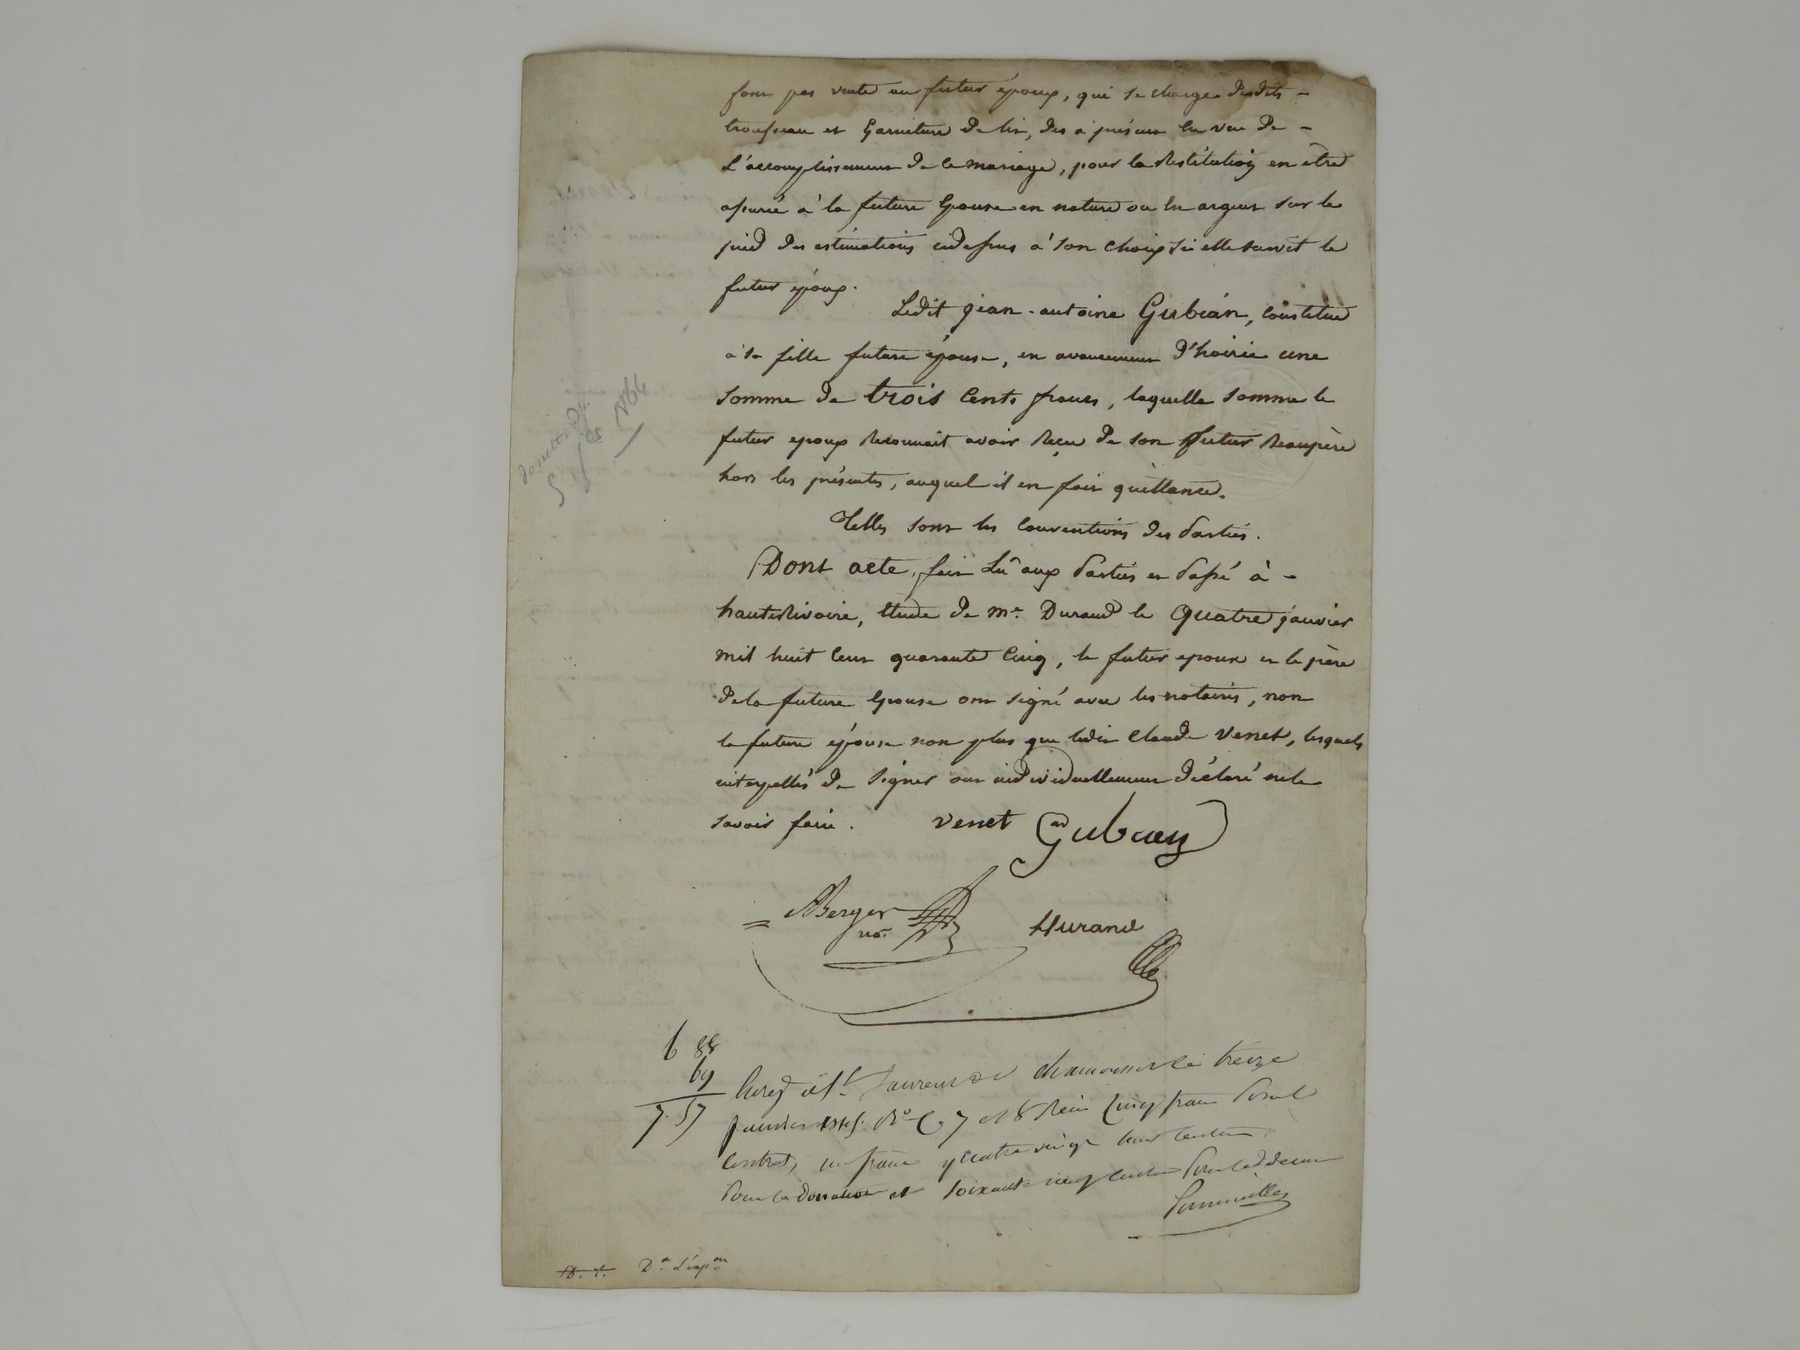 font pas vente au futur époux, qui se charge desdits -
trousseau et Garniture de lit, dès à présent en vue de -
L'accomplissement de ce mariage, pour la Restitution en être
assurée à la future Epouse en nature ou en argent sur le
pied des estimations cidessus à son choix si elle survit le
futur époux.
Ledit jean-antoine Gubian, constitue
à sa fille future épouse, en avancement d'hoirie une
somme de trois Cents francs, laquelle somme le
futur epoux Reconnait avoir Reçu de son futur Beaupère
hors les présentes, auquel il en fait quittance.
Telles sont les Conventions des Parties.
Dont acte, fait Lu aux Parties et Passé à -
hauterivoire, Etude de Me. Durand le quatre janvier
mil huit Cent quarante Cinq, le futur epoux et le père
de la future Epouse ont signé avec les notaires, non
la future épouse non plus que ledit Claude Venet, lesquels
interpellés de signer ont individuellement déclaré ne le
savoir faire. venet Gubian
Berger
no. Durand
6 88
69
7.57
Enreg à St. Laurent de Chamousset le treize
janvier 1845. Ro C. 7 Reçu Cinq francs Pour le
Contrat, un franc quatre vingt huit centimes
Pour la Donation et soixante neuf centimes Pour le decime
D. t. Don. L'exp.on